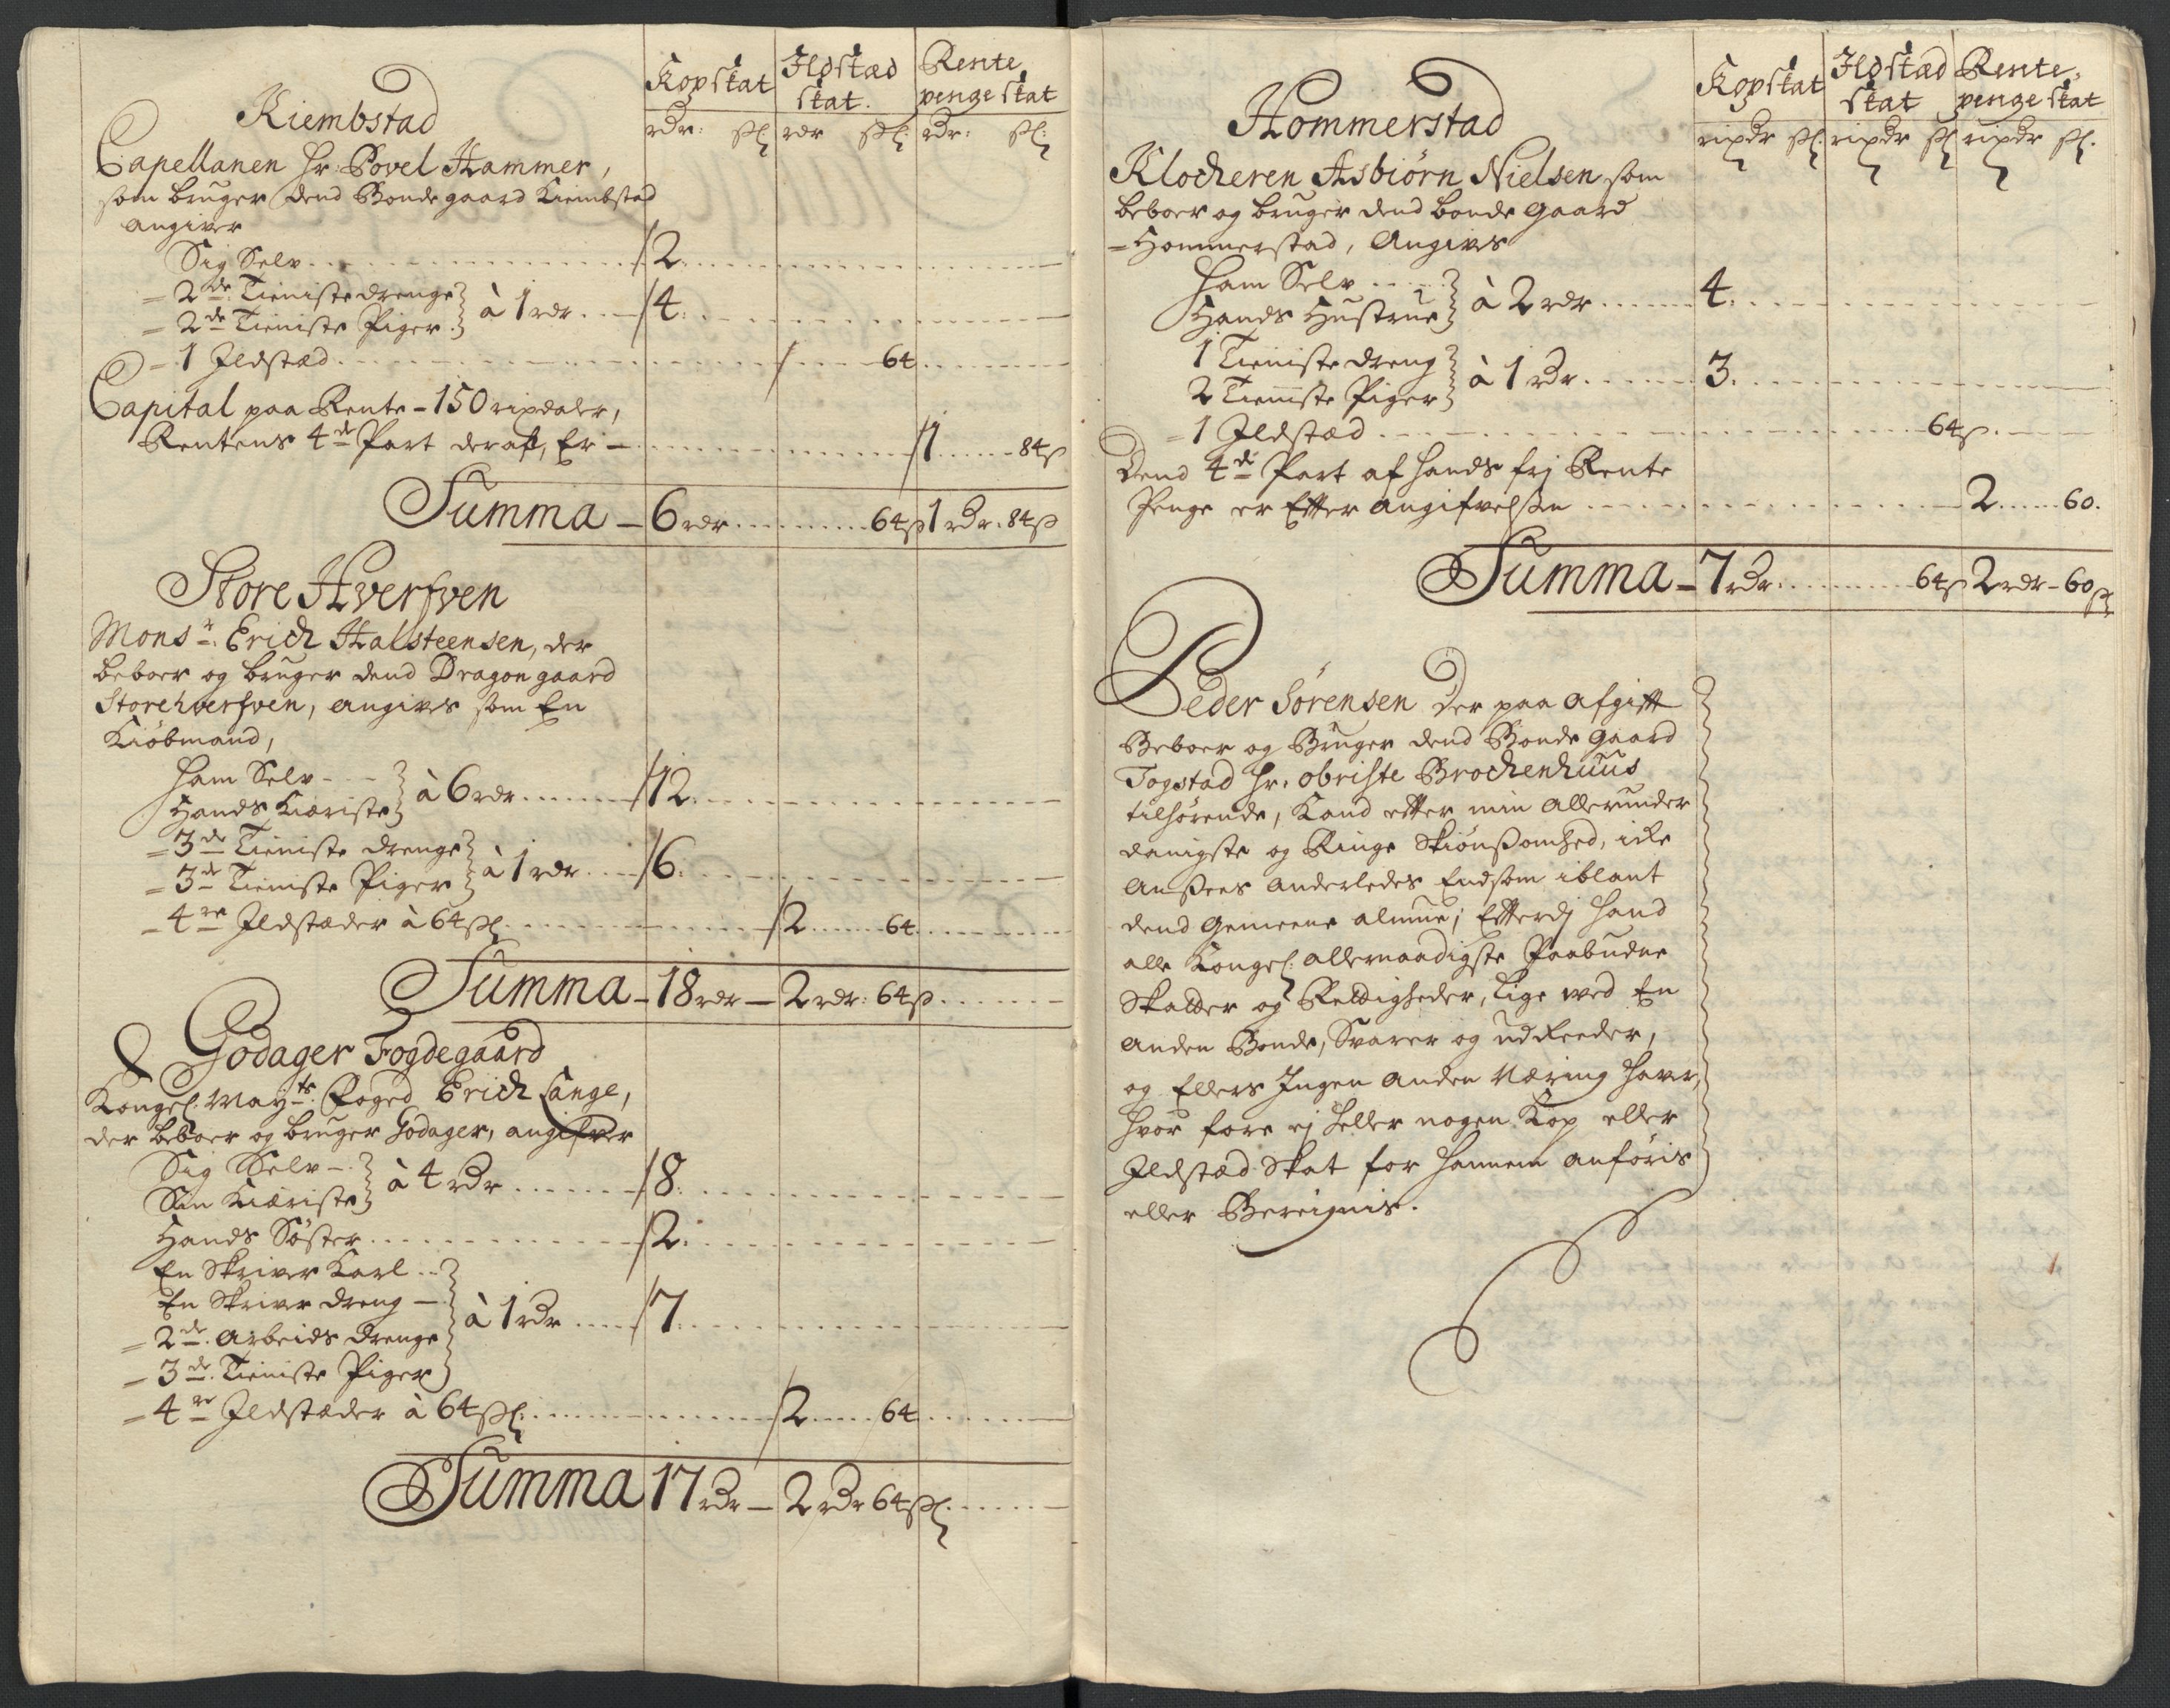 Kopskat Ildstæd skat. Rente penge skat
rdr: ßl: rdr ßl: rdr: ßl:
Kiembstad
Capellanen Hr: Povel Hammer,
som bruger dend Bonde gaard Kiembstad
angiver
Sig Selv 2
2de Tieniste drenge
2de Tieniste Piger à 1 rdr 4
1 Ildstæd 64
Capital paa Rente - 150 rixdaler,
Rentens 4de Part deraf, Er - 1 84ß
Summa - 6 rdr 64ß 1 rdr. 84ß
Store Hverfven
Monsr. Erich Halsteensen, der
beboer og bruger dend Dragon gaard
Storehverfven, angives som En
Kiöbmand,
Ham Selv - -
Hands Kiæriste à 6 rdr 12
3de Tieniste drenge
3de Tieniste Piger à 1 rdr 6
4re Ildstæder à 64 ßl 2 64
Summa - 18 rdr - 2 rdr: 64ß
Godager Fogdegaard
Kongel. Mayts. Foged Erich Lange,
der beboer og bruger Godager, angifver
Sig Selv -
Sin Kiæriste à 4 rdr 8
Hands Söster 2
En Skriver Karl
En Skriver dreng -
2de Arbeids drenge à 1 rdr 7
3de Tieniste Piger
4re Ildstæder à 64 ßl: 2 64
Summa 17 rdr - 2 rdr 64 ßl.
Kopskat Ildstæd skat Rente penge skat
rixdr ßl. rixdr ßl rixdr ßl.
Hommerstad
Klocheren Asbiörn Nielsen som
beboer og bruger dend bonde gaard
Hommerstad, Angives
Ham Selv
Hands Hustrue à 2 rdr 4.
1 Tieniste dreng
2 Tieniste Piger à 1 rdr 3.
1 Ildstæd 64ß.
Dend 4de Part af hands frj Rente
Penge er Efter angifvelsen 2 60.
Summa - 7 rdr. 64ß 2 rdr - 60 ßl
Peder Sörensen der paa afgift
Beboer og Bruger dend Bonde gaard
Togstad Hr. Obriste Brochenhuus
tilhörende, Kand efter min allerunder
danigste og Ringe Skiönsomhed, icke
Ansees anderledes End som iblant
dend gemeene almue; Efterdj hand
alle Kongel: allernaadigste Paabudne
Skatter og Rettigheder, lige med En
anden Bonde, Svarer og udreeder,
og Ellers Ingen anden Næring haver,
hvor fore ej heller nogen Kop eller
Ildstæd Skat for hannem anföris
eller Bereignis.